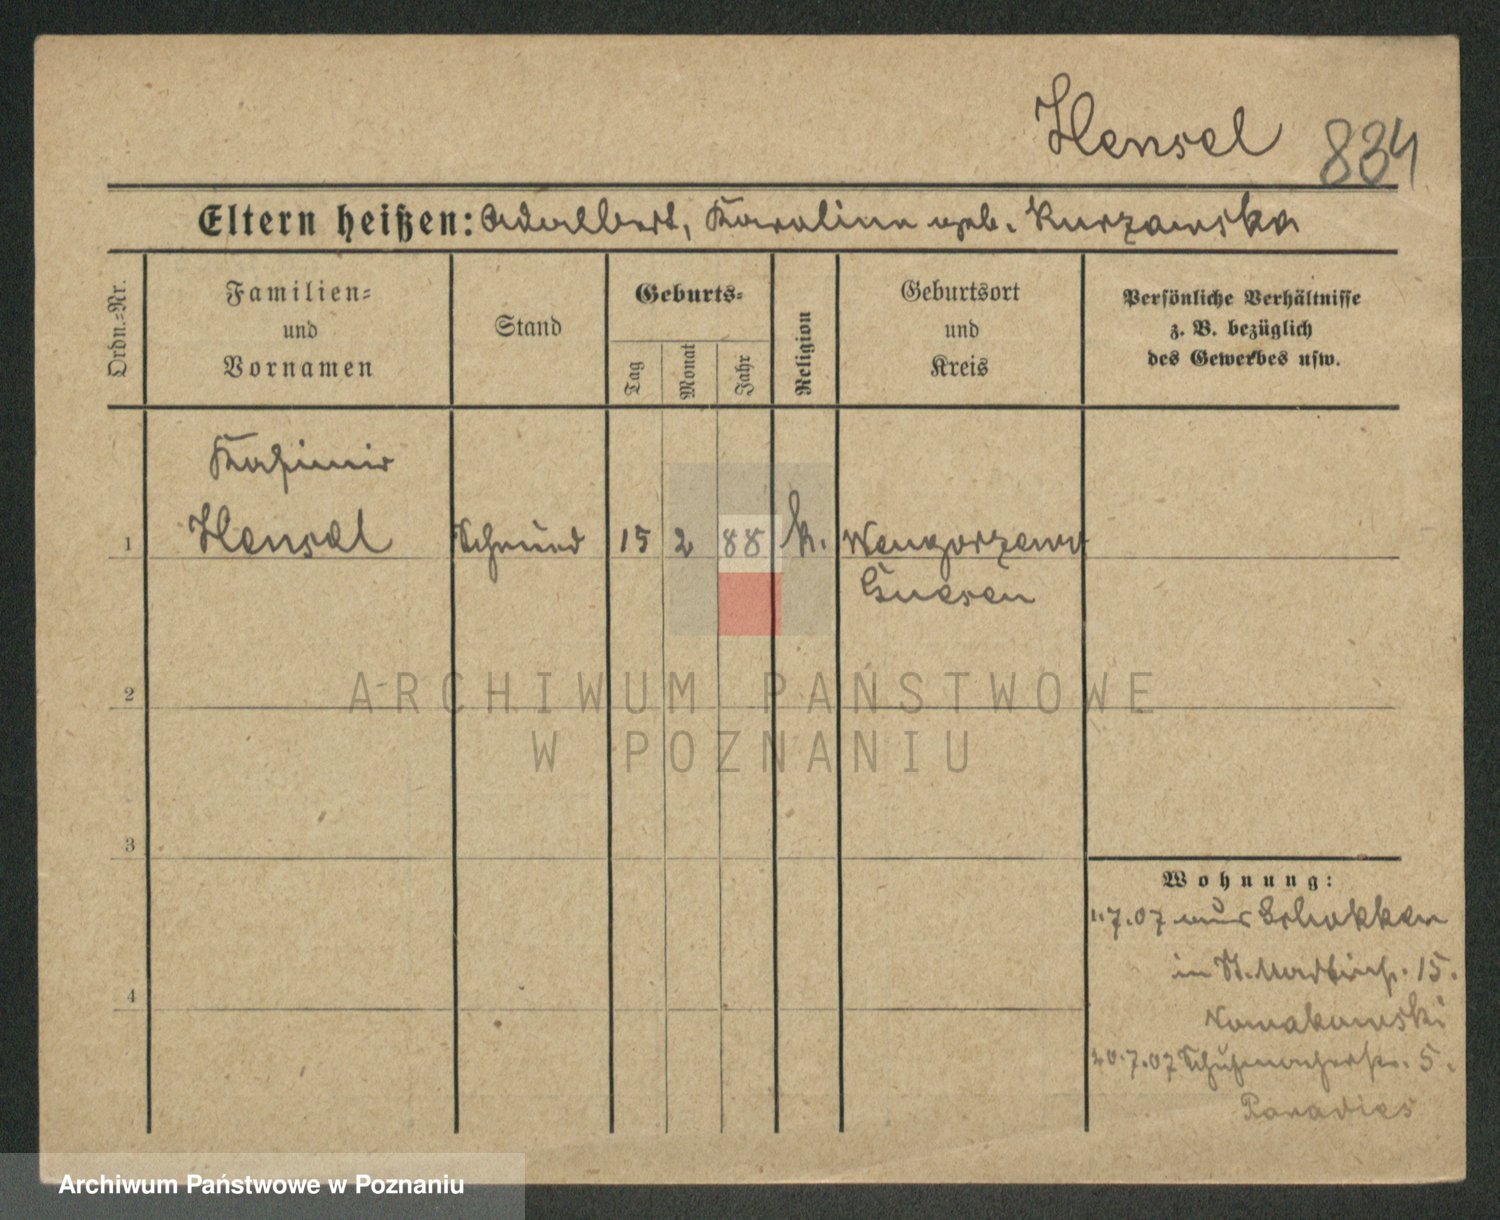 Hensel 834
Eltern heißen: Adalbert, Karolina geb. Kurzawska
Ordn.-Nr.
Familien-
und
Vornamen
Stand
Geburts-
Tag
Monat
Jahr
Religion
Geburtsort
und
Kreis
Persönliche Verhältnisse
z. B. bezüglich
des Gewerbes usw.
Kasimir
1 Hensel Schmied 15 2 88 k.
Gnesen
2
ARCHIWUM PAŃSTWOWE
W POZNANIU
3
Wohnung:
1.7.07 aus Schokken
in St. Martinstr. 15.
Nowakowski
4
20.7.07 Schuhmacherstr. 5.
Paradies
Archiwum Państwowe w Poznaniu